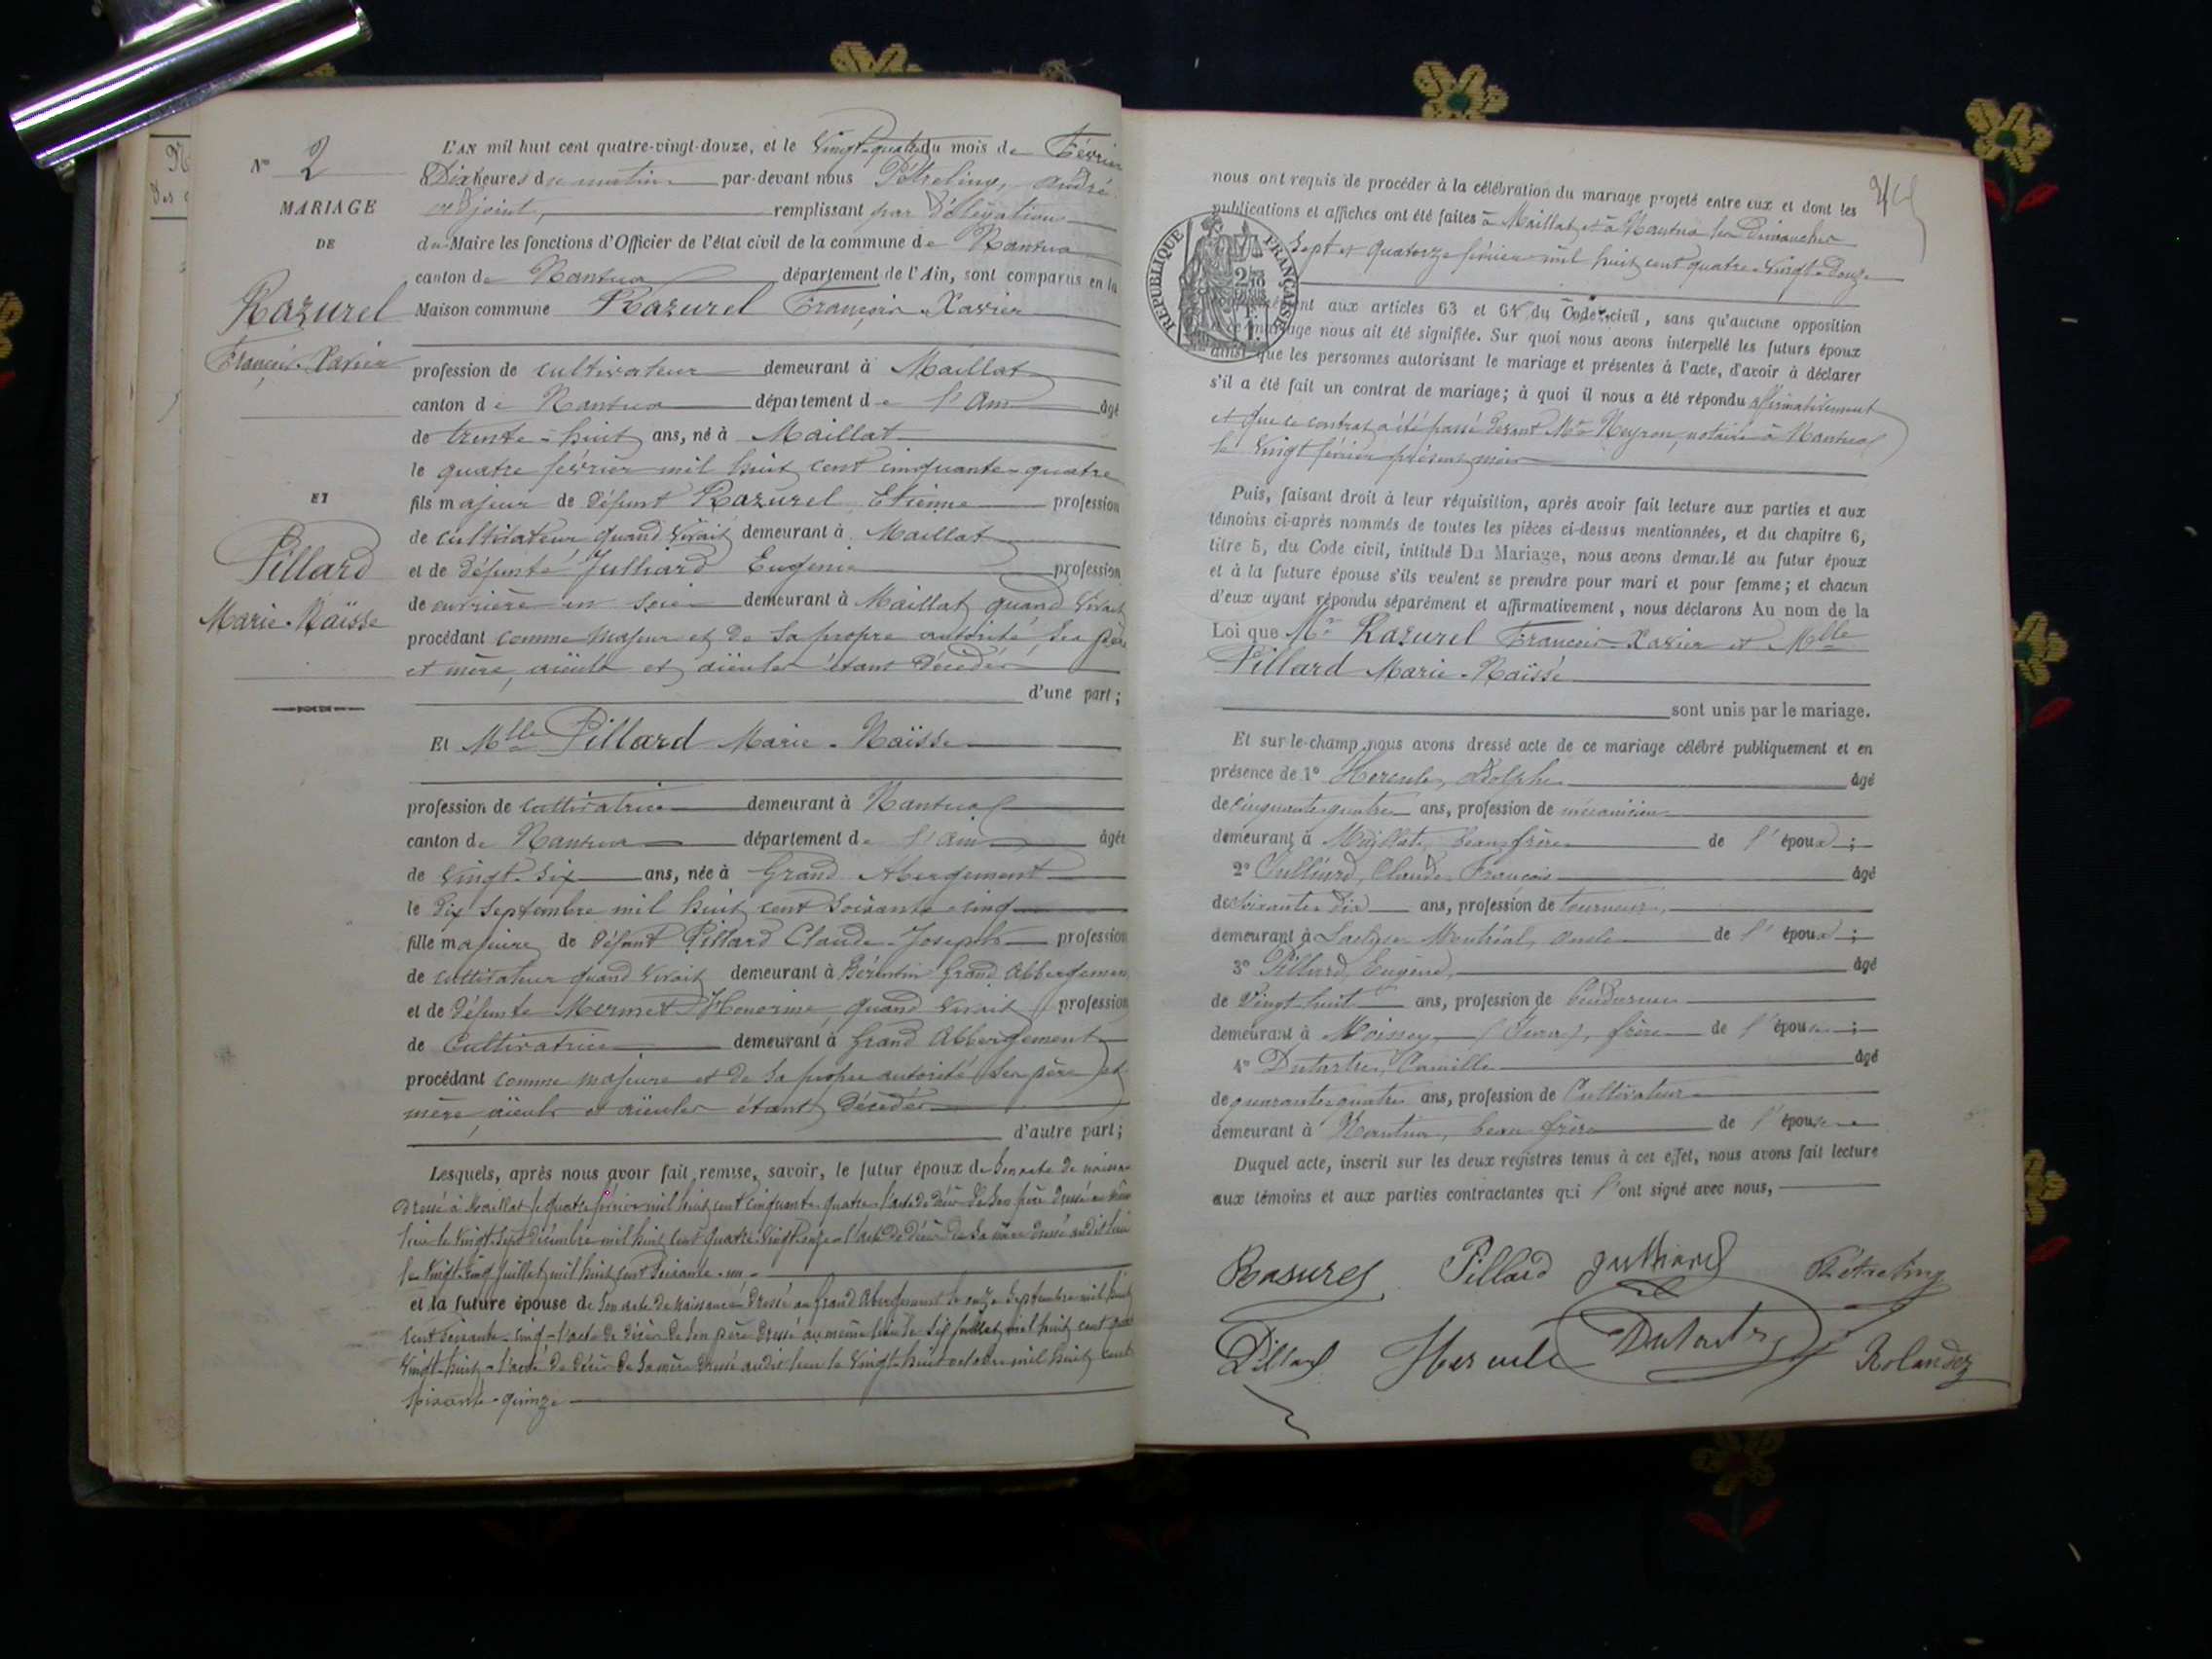 N° 2
MARIAGE
DE
Razurel
François-Xavier
ET
Pillard
Marie-Naïsse
L'AN mil huit cent quatre-vingt-douze, et le Vingt-quatre du mois de Février
Dix heures du matin par-devant nous Pétreling, André
adjoint, remplissant par délégation
du Maire les fonctions d'Officier de l'état civil de la commune de Nantua
canton de Nantua département de l'Ain, sont comparus en la
Maison commune Razurel François-Xavier
profession de cultivateur demeurant à Maillat
canton de Nantua département de l'Ain âgé
de trente-huit ans, né à Maillat
le quatre février mil huit cent cinquante-quatre
fils majeur de défunt Razurel Etienne profession
de cultivateur quand vivait demeurant à Maillat
et de défunte Julliard Eugénie profession
de ouvrière en soie demeurant à Maillat quand vivait
procédant comme majeur et de sa propre autorité, ses père
et mère, aïeuls et aïeules étant décédés
d'une part;
Et Mlle Pillard Marie-Naïsse
profession de cultivatrice demeurant à Nantua
canton de Nantua département de l'Ain âgée
de vingt-six ans, née à Grand Abergement
le dix septembre mil huit cent soixante-cinq
fille majeure de défunt Pillard Claude-Joseph profession
de cultivateur quand vivait demeurant à Grand Abbergement
et de défunte Mermet Honorine, quand vivait profession
de Cultivatrice demeurant à Grand Abbergement
procédant comme majeure et de sa propre autorité ses père et
mère, aïeuls et aïeules étant décédés
d'autre part;
Lesquels, après nous avoir fait remise, savoir, le futur époux de son acte de naissance
dressé à Maillat le quatre février mil huit cent cinquante-quatre - l'acte de décès de son père dressé au même
lieu le vingt-sept décembre mil huit cent quatre-vingt-onze - l'acte de décès de sa mère dressé audit lieu
le vingt-cinq juillet mil huit cent soixante-un -
et la future épouse de son acte de naissance dressé au Grand Abergement le onze septembre mil huit
cent soixante-cinq - l'acte de décès de son père dressé au même lieu le six juillet mil huit cent quatre
vingt-huit - l'acte de décès de sa mère dressé audit lieu le vingt-huit octobre mil huit cent
soixante-quinze
nous ont requis de procéder à la célébration du mariage projeté entre eux et dont les
publications et affiches ont été faites à Maillat et à Nantua les Dimanches
Sept et Quatorze février mil huit cent quatre-vingt-douze
RÉPUBLIQUE FRANÇAISE
aux articles 63 et 64 du Code civil, sans qu'aucune opposition
mariage nous ait été signifiée. Sur quoi nous avons interpellé les futurs époux
ainsi que les personnes autorisant le mariage et présentes à l'acte, d'avoir à déclarer
s'il a été fait un contrat de mariage; à quoi il nous a été répondu affirmativement
et que ce contrat a été passé devant Me Neyron, notaire à Nantua
le vingt février présent mois
Puis, faisant droit à leur réquisition, après avoir fait lecture aux parties et aux
témoins ci-après nommés de toutes les pièces ci-dessus mentionnées, et du chapitre 6,
titre 5, du Code civil, intitulé Du Mariage, nous avons demandé au futur époux
et à la future épouse s'ils veulent se prendre pour mari et pour femme; et chacun
d'eux ayant répondu séparément et affirmativement, nous déclarons Au nom de la
Loi que Mr Razurel François-Xavier et Mlle
Pillard Marie-Naïsse
sont unis par le mariage.
Et sur-le-champ nous avons dressé acte de ce mariage célébré publiquement et en
présence de 1° Hercule, Adolphe âgé
de cinquante-quatre ans, profession de mécanicien
demeurant à Maillat, beau-frère de l'époux;
2° Julliard, Claude François âgé
de soixante-dix ans, profession de tourneur,
demeurant à Montréal, oncle de l'époux;
3° Pillard, Eugène, âgé
de Vingt-huit ans, profession de Gendarme
demeurant à Moissey (Jura), frère de l'épouse;
4° Dutartre, Camille âgé
de quarante-quatre ans, profession de Cultivateur
demeurant à Nantua, beau-frère de l'épouse
Duquel acte, inscrit sur les deux registres tenus à cet effet, nous avons fait lecture
aux témoins et aux parties contractantes qui l'ont signé avec nous,
Rasurel Pillard Julliard Pétreling
Pillard Hercule Dutartre Rolandez